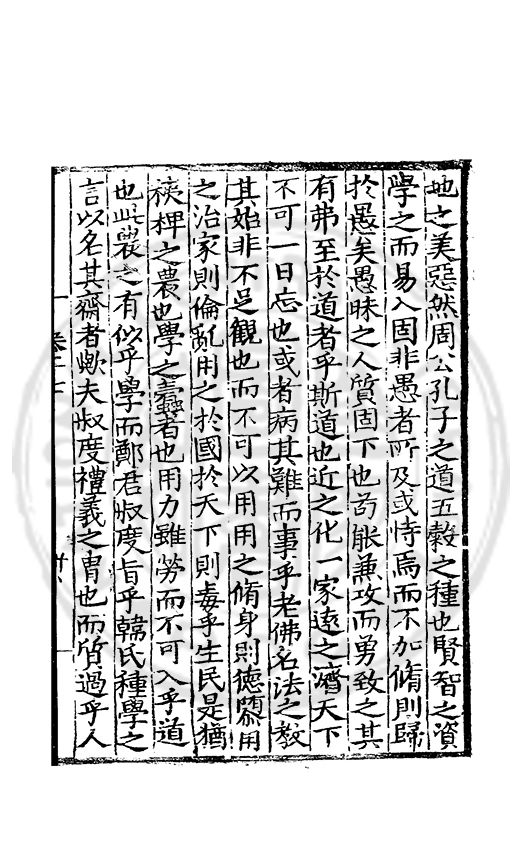 地之美惡然周公孔子之道五穀之種也賢智之資
學之而易入固非愚者所及或恃焉而不加脩則歸
於愚矣愚昧之人質固下也苟能兼攻而勇致之其
有弗至於道者乎斯道也近之化一家遠之濟天下
不可一日忘也或者病其難而事乎老佛名法之敎
其始非不足觀也而不可以用用之脩身則德隳用
之治家則倫亂用之於國於天下則毒乎生民是猶
稊稗之農也學之蠹者也用力雖勞而不可入乎道
也此農之有似乎學而鄭君叔度旨乎韓氏種學之
言以名其齋者歟夫叔度禮義之冑也而質過乎人
卷之十